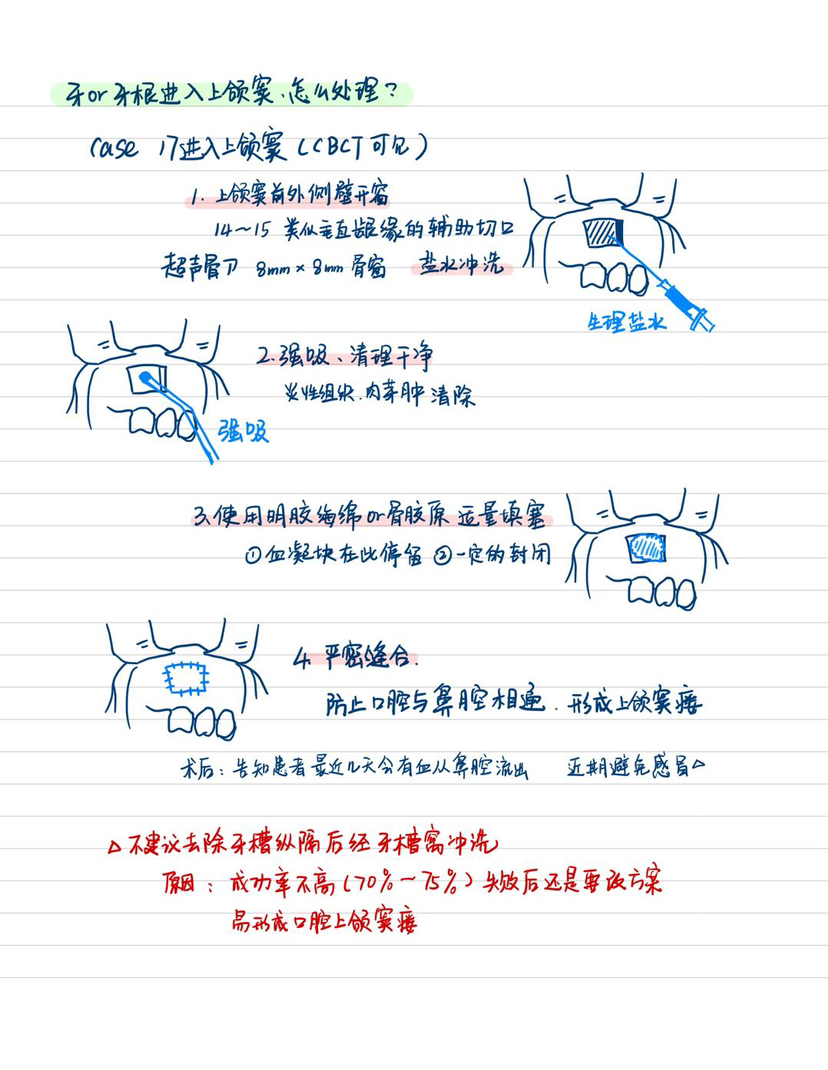 牙or牙根进入上颌窦.怎么处理？
Case 17进入上颌窦(CBCT可见)
1. 上颌窦前外侧壁开窗
14～15 类似垂直龈缘的辅助切口
超声骨刀 8mm×8mm骨窗 盐水冲洗
生理盐水
2.强吸、清理干净
炎性组织.肉芽肿 清除
强吸
3.使用明胶海绵or骨胶原 适量填塞
①血凝块在此停留 ②一定的封闭
4. 严密缝合.
防止口腔与鼻腔相通.形成上颌窦瘘
术后：告知患者最近几天会有血从鼻腔流出 近期避免感冒△
△不建议去除牙槽纵隔后经牙槽窝冲洗
原因：成功率不高(70%～75%)失败后还是要改方案
易形成口腔上颌窦瘘